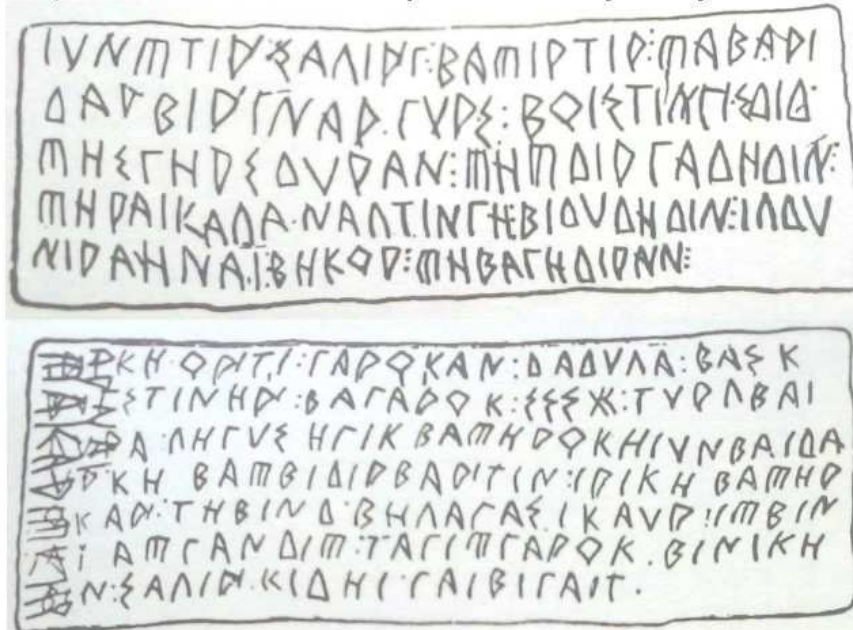 ΙΥΝͲΤΙΡ·ΣΑΛΙΡΓ:ΒΑͲΙΡΤΙΡ:ͲΑΒΑΡΙ
ΔΑΡ·ΒΙΡΙΝΑΡ·ΓΥΡΣ:ΒΟΙΣΤΙΝΓΙΣΔΙΔ·
ͲΗΣΓΗΡΣΔΥΡΑΝ:ͲΗͲΔΙΡΓΑΔΗΔΙΝ:
ͲΗΡΑΙΚΑΛΑ·ΝΑΛΤΙΝΓΗ:ΒΙΔΥΔΗΔΙΝ:ΙΛΔΥ
ΝΙΡΑΗΝΑΙ:ΒΗΚΟΡ:ͲΗΒΑΓΗΔΙΡΑΝ:
ΚΗ·ΟΡΤΙ:ΓΑΡΟΚΑΝ:ΔΑΔΥΛΑ:ΒΑΣΚ
ΣΤΙΝΗΡ:ΒΑΓΑΡΟΚ:ΣΣΣΧ:ΤΥΡΛΒΑΙ
ΡΑ·ΛΗΓΥΣΗΓΙΚ ΒΑͲΗΡΟΚΗΙΥΝΒΑΙΔΑ
ΚΗ ΒΑͲΒΙΔΙΡΒΑΡΤΙΝ:ΙΡΙΚΗ ΒΑͲΗΡ
ΚΑΡ·ΤΗΒΙΝΔ·ΒΗΛΑΓΑΣΙΚΑΥΡ:ΙͲΒΙΝ
Ι ΑͲΓΑΝΔΙͲ·ΤΑΓΙͲΓΑΡΟΚ·ΒΙΝΙΚΗ
Ν:ΣΑΛΙΡ·ΚΙΔΗΙ·ΓΑΙΒΙΓΑΙΤ·